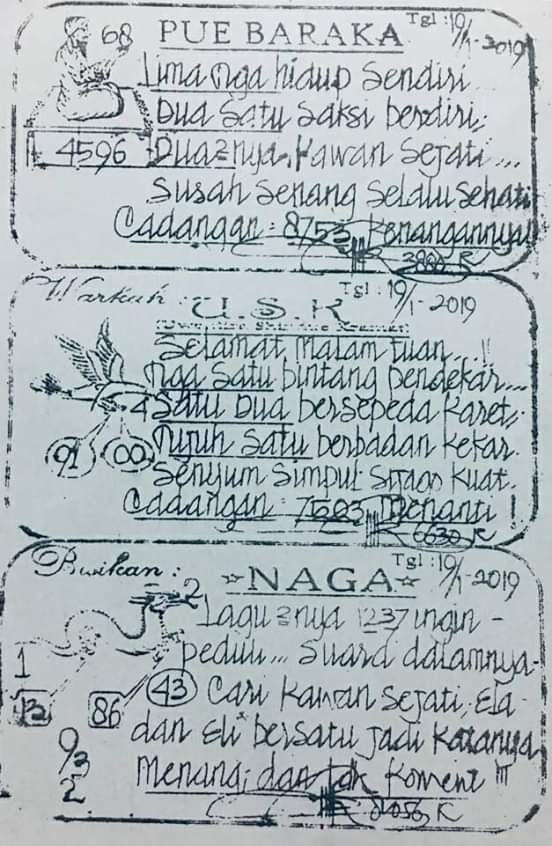 68 PUE BARAKA Tgl : 19/1-2019
Lima nga hidup Sendiri
Dua Satu Saksi berdiri;
4596 Dua2nya Kawan Sejati ...
Susah Senang Selalu Sehati
Cadangan : 8753 Kenangannya
3880 K
Warkah : U.S.K Tgl : 19/1-2019
Selamat malam tuan...!!
nga Satu bintang pendekar...
4 Satu Dua bersepeda Karet;
91 00 Tujuh Satu berbadan kekar.
Senyum Simpul Kuat.
Cadangan : Menanti !
6630 K
Bisikan : NAGA Tgl : 19/1-2019
2 Lagu 2nya 1237 ingin -
1 peduli... Suara dalamnya-
13 86 43 Cari Kawan Sejati, Ela
9/3 dan Eli bersatu Jadi Katanya
2 Menang; dan tak Koment !!!
K